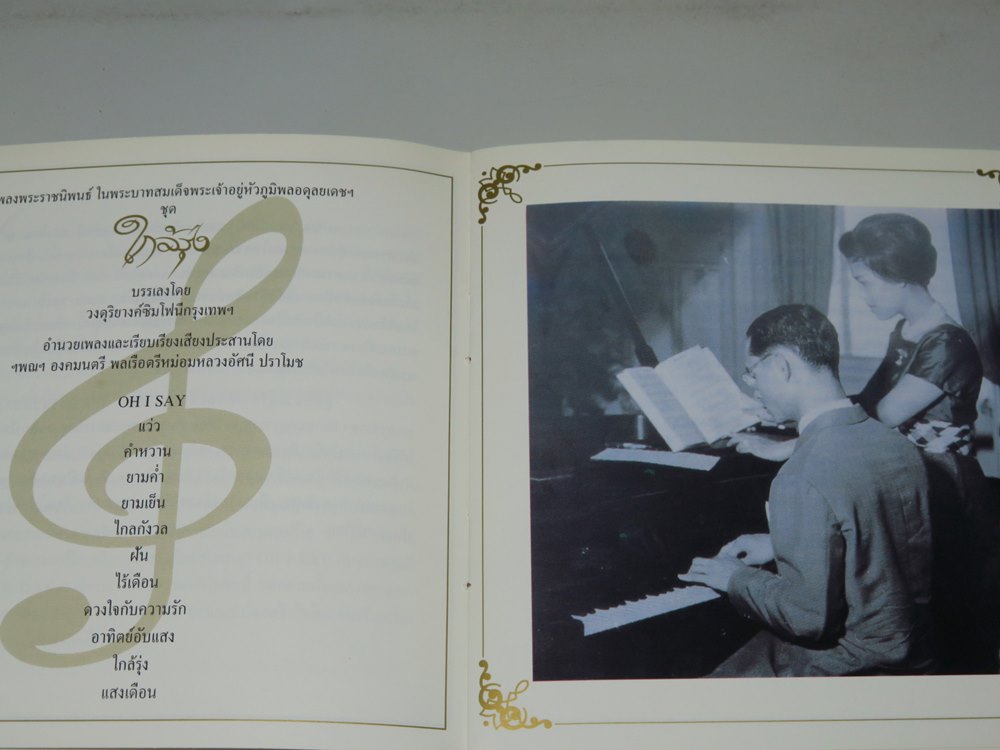 เพลงพระราชนิพนธ์ ในพระบาทสมเด็จพระเจ้าอยู่หัวภูมิพลอดุลยเดชฯ
ชุด
ใกล้รุ่ง
บรรเลงโดย
วงดุริยางค์ซิมโฟนีกรุงเทพฯ
อำนวยเพลงและเรียบเรียงเสียงประสานโดย
ฯพณฯ องคมนตรี พลเรือตรีหม่อมหลวงอัศนี ปราโมช
OH I SAY
แว่ว
คำหวาน
ยามค่ำ
ยามเย็น
ไกลกังวล
ฝัน
ไร้เดือน
ดวงใจกับความรัก
อาทิตย์อับแสง
ใกล้รุ่ง
แสงเดือน